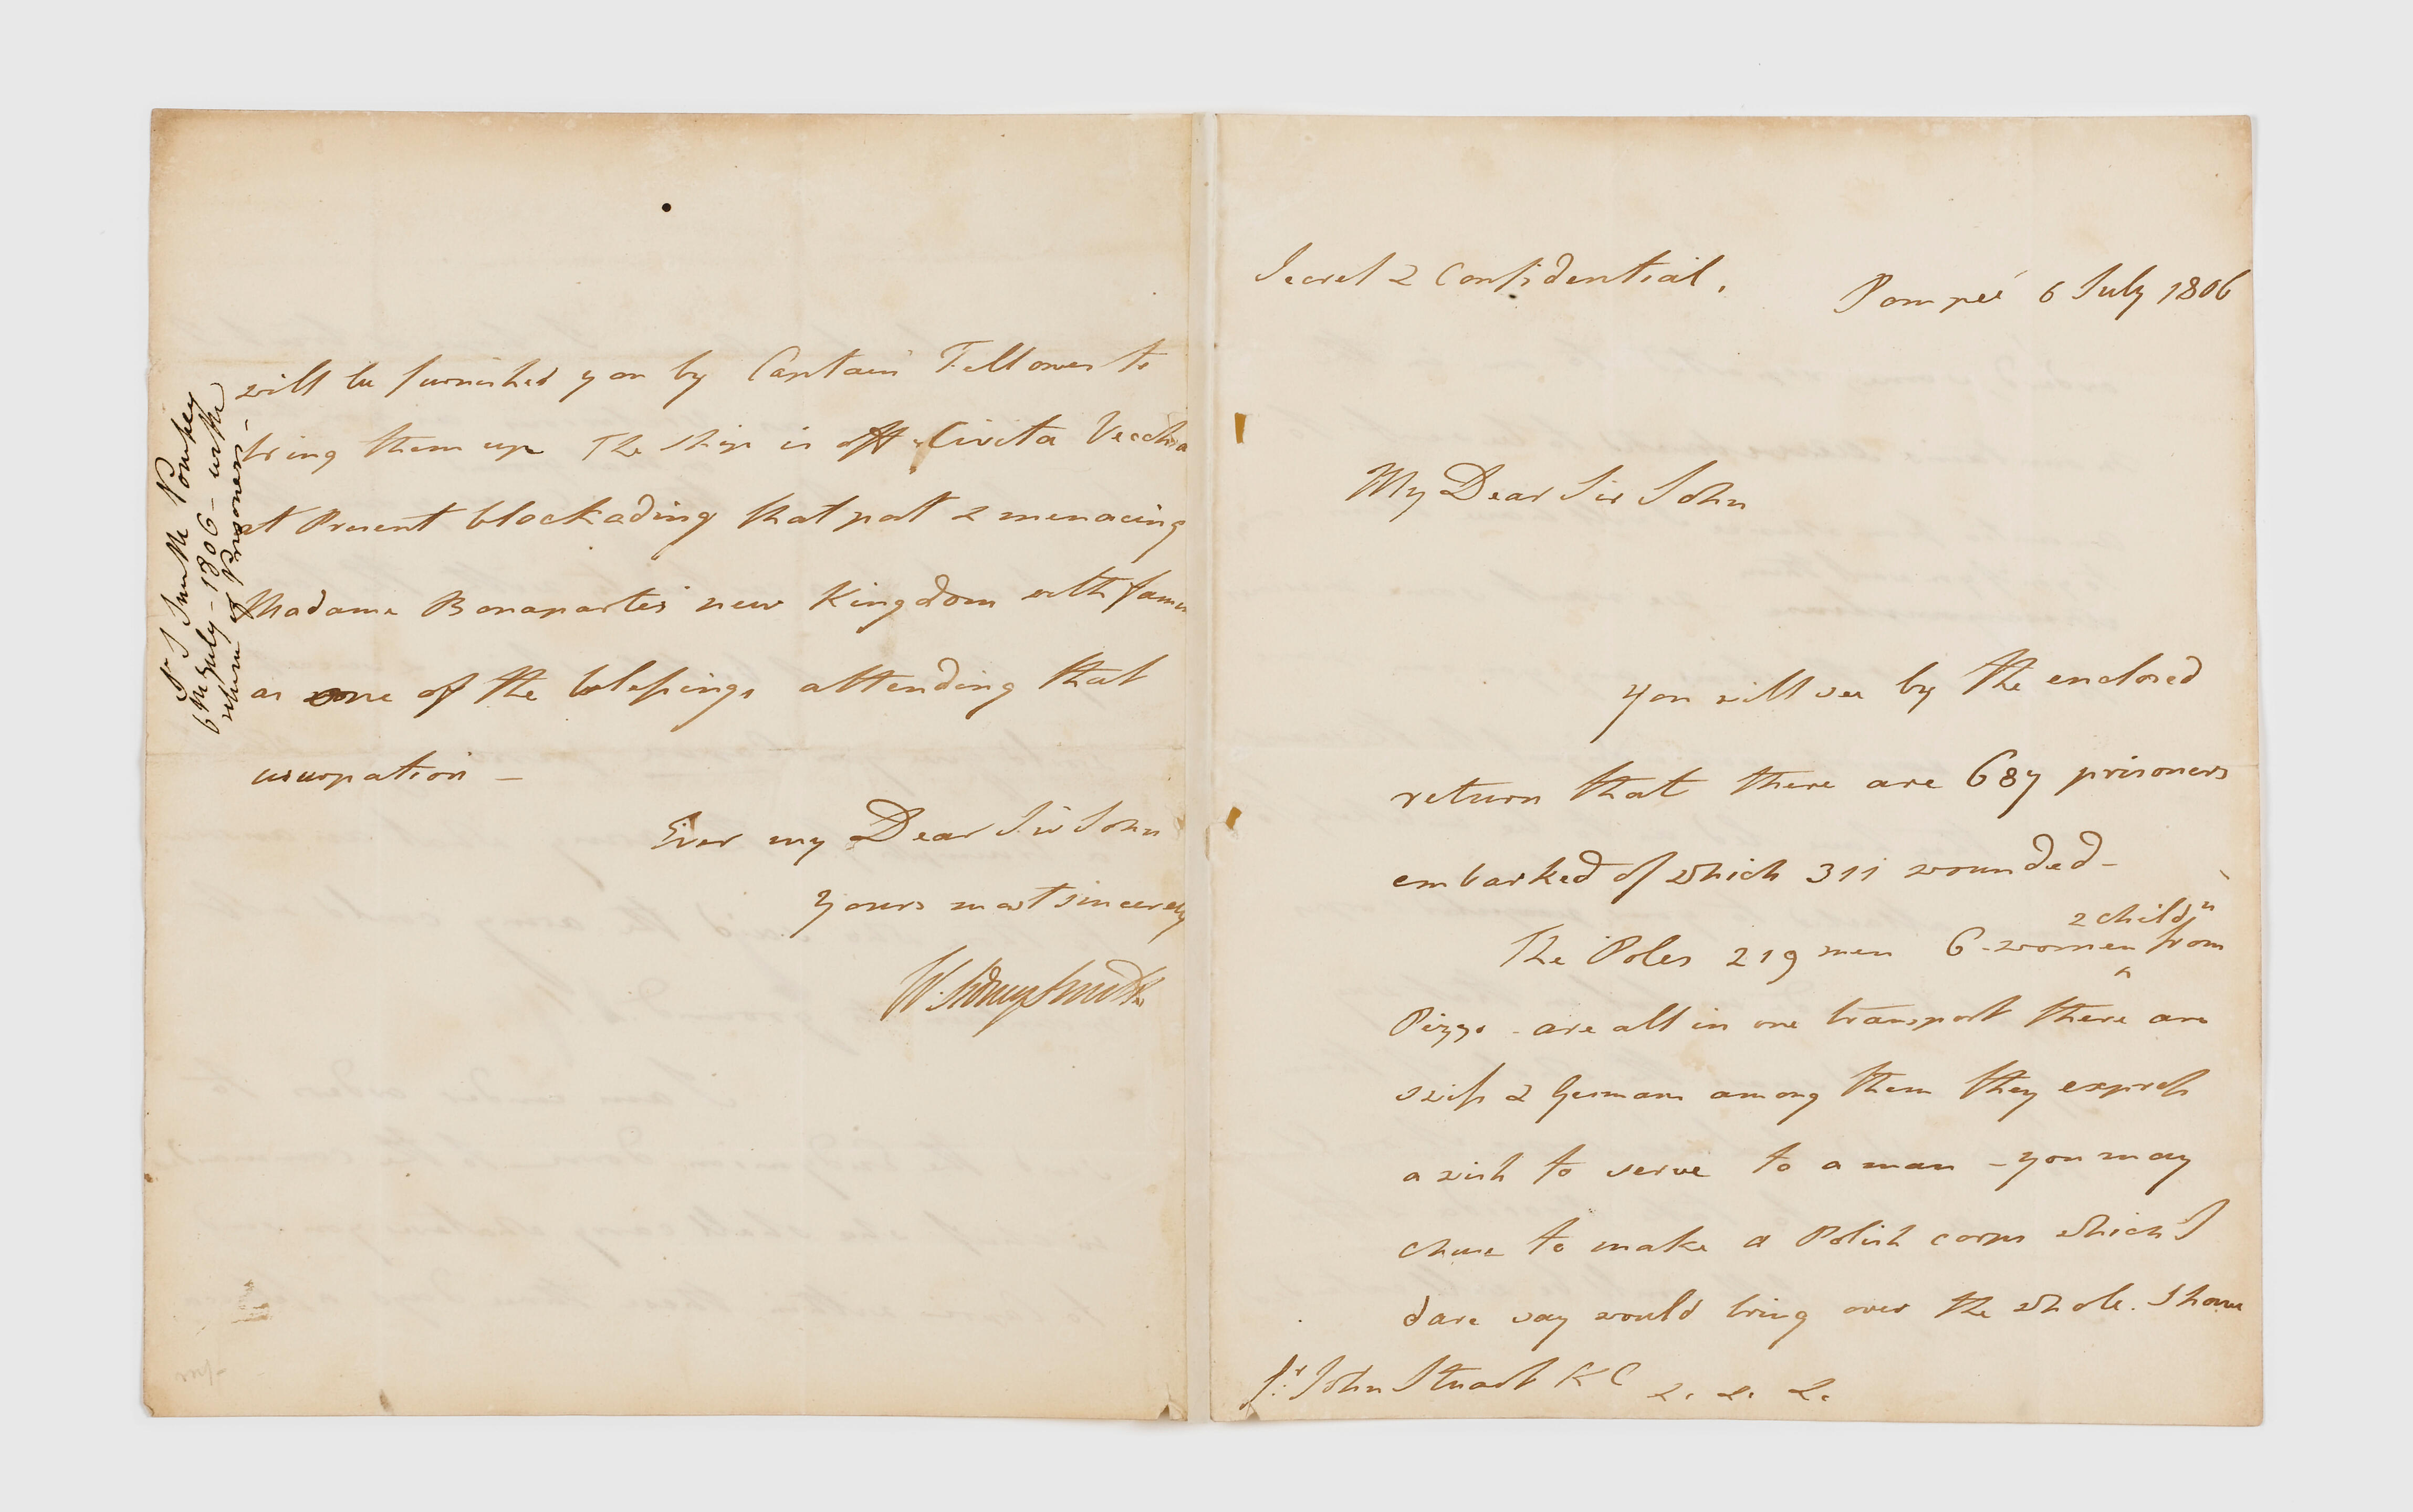 Secret & Confidential.
Pompeé 6 July 1806
My Dear Sir John
You will see by the enclosed
return that there are 687 prisoners
embarked of which 311 wounded -
2 childⁿ
The Poles 219 men 6 women ^ from
Pizzo - are all in one transport there are
swiss & Germans among them they express
a wish to serve to a man - you may
chuse to make a Polish corps which I
dare say would bring over the whole. I have
Sʳ. John Stuart KC &. &. &.
will be furnished you by Captain Fellowes to
bring them up The ship is off Civita Vecchia
at Present blockading that port & menacing
Madame Bonapartes new Kingdom with famine
as one of the blessings attending that
usurpation -
Ever my Dear Sir John
Yours most sincerely
W. Sidney Smith
Sʳ S Smith Pompey
6th July - 1806 - with
return of Prisoners -